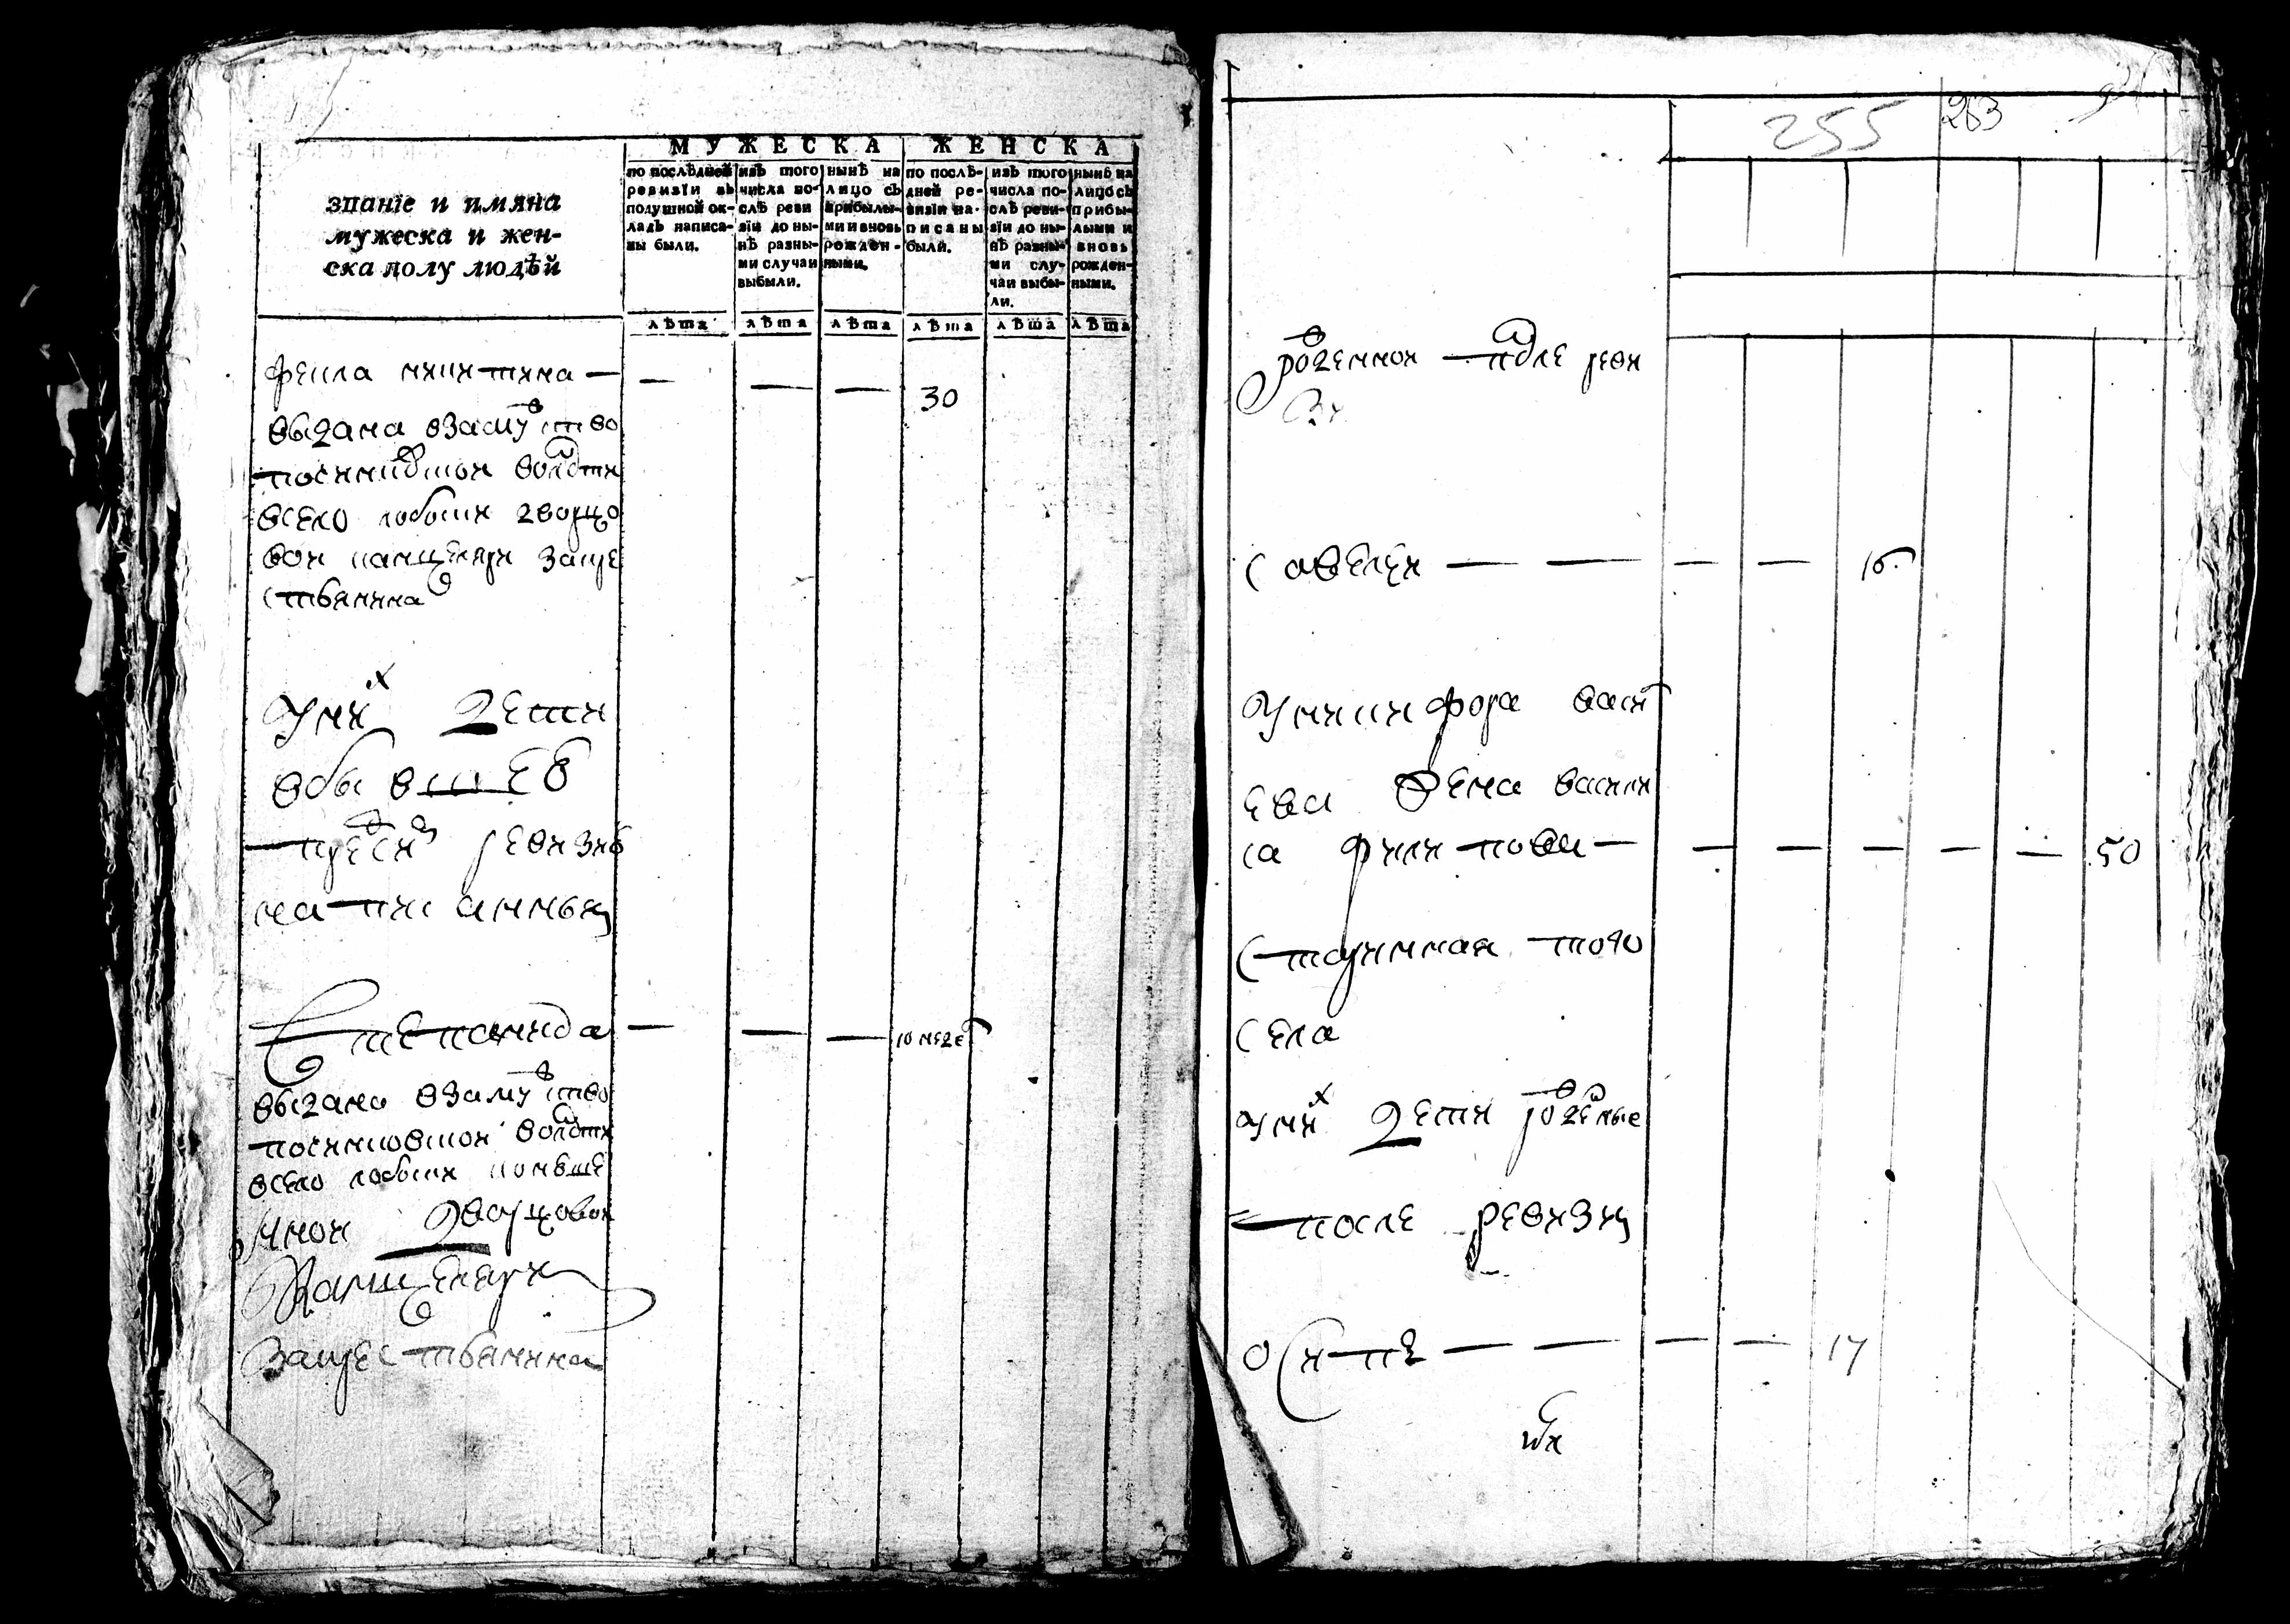 МУЖЕСКА ЖЕНСКА
званїе и имяна
мужеска и жен-
ска полу людѣй
по послѣдней
ревизїи въ
подушной ок-
ладъ написа-
ны были.
изъ того
числа по-
слѣ реви
зїи до ны-
нѣ разны-
ми случаи
выбыли.
нынѣ на
лицо съ
прибылы-
ми и вновь
рожден-
ными.
по послѣ-
дней ре-
визїи на-
писаны
были.
изъ того
числа по-
слѣ реви-
зїи до ны-
нѣ разны-
ми слу-
чаи выбы-
ли.
нынѣ на
лицо съ
прибы-
лыми и
вновь
рожден-
ными.
лѣта лѣта лѣта лѣта лѣта лѣта
фекла никитина — — — — 30
выдана взамуство
волости
всело дворцо
вои канцеляри закре
стьянина
уних дети
вбывшей
пред сим ревизиі
написанныя
степанида — — — 10 недел
выдана взамуство
волости
всело конюше
нной дворцовои
канцеляри
закрестьянина
255 263
рожденнои после реви
зи
савелеи — — — — 16
уникифора васил
ева жена васили
са филипова — — — — — — 50
старинная того
села
уних дети рожденые
после ревизиі
осипъ — — — — 17
их